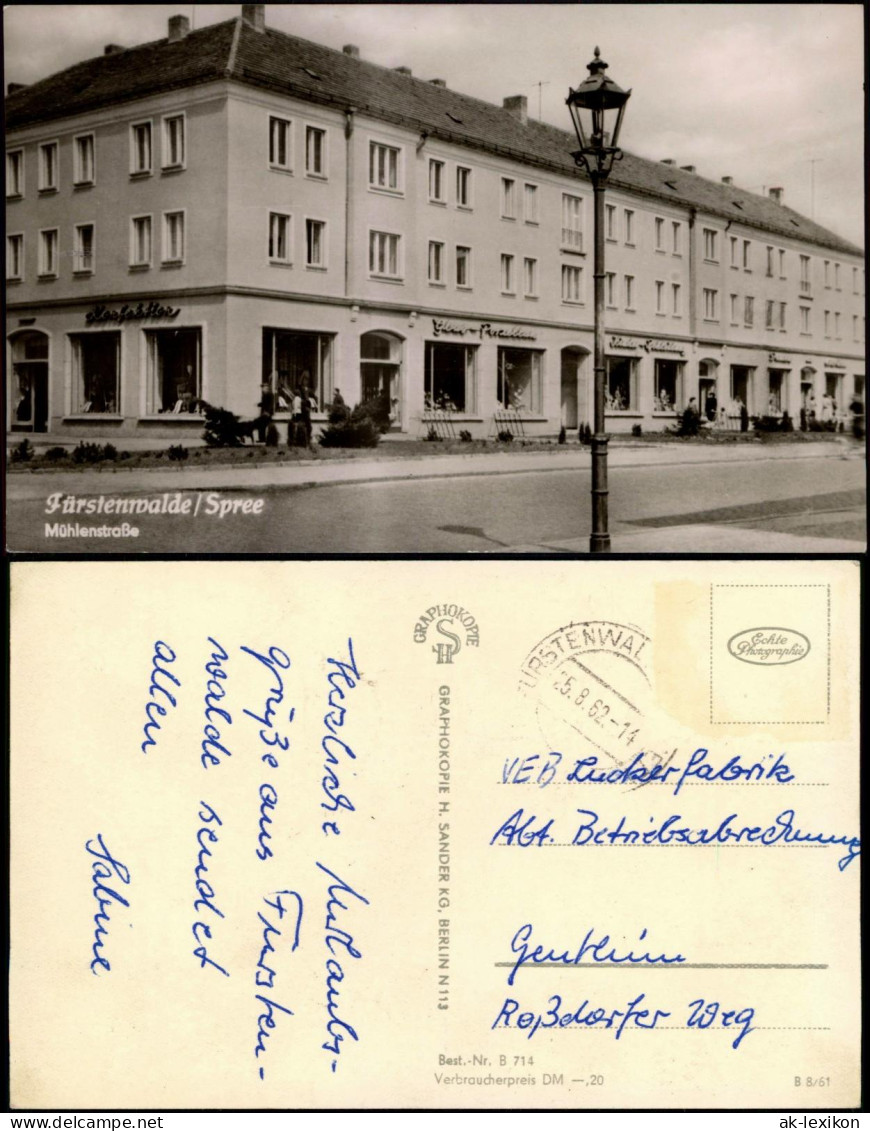 Konfektion
Glas-Porzellan
Kinder-Kleidung
Fürstenwalde/Spree
Mühlenstraße
GRAPHOKOPIE
SH
Echte
Photographie
FÜRSTENWAL
25.8.62.-14
GRAPHOKOPIE H. SANDER KG, BERLIN N 113
Herzliche Urlaubs-
grüße aus Fursten-
walde sendet
allen
Sabine
VEB Zuckerfabrik
Abt. Betriebsabrechnung
Genthin
Roßdorfer Weg
Best.-Nr. B 714
Verbraucherpreis DM —,20
B 8/61
ak-lexikon